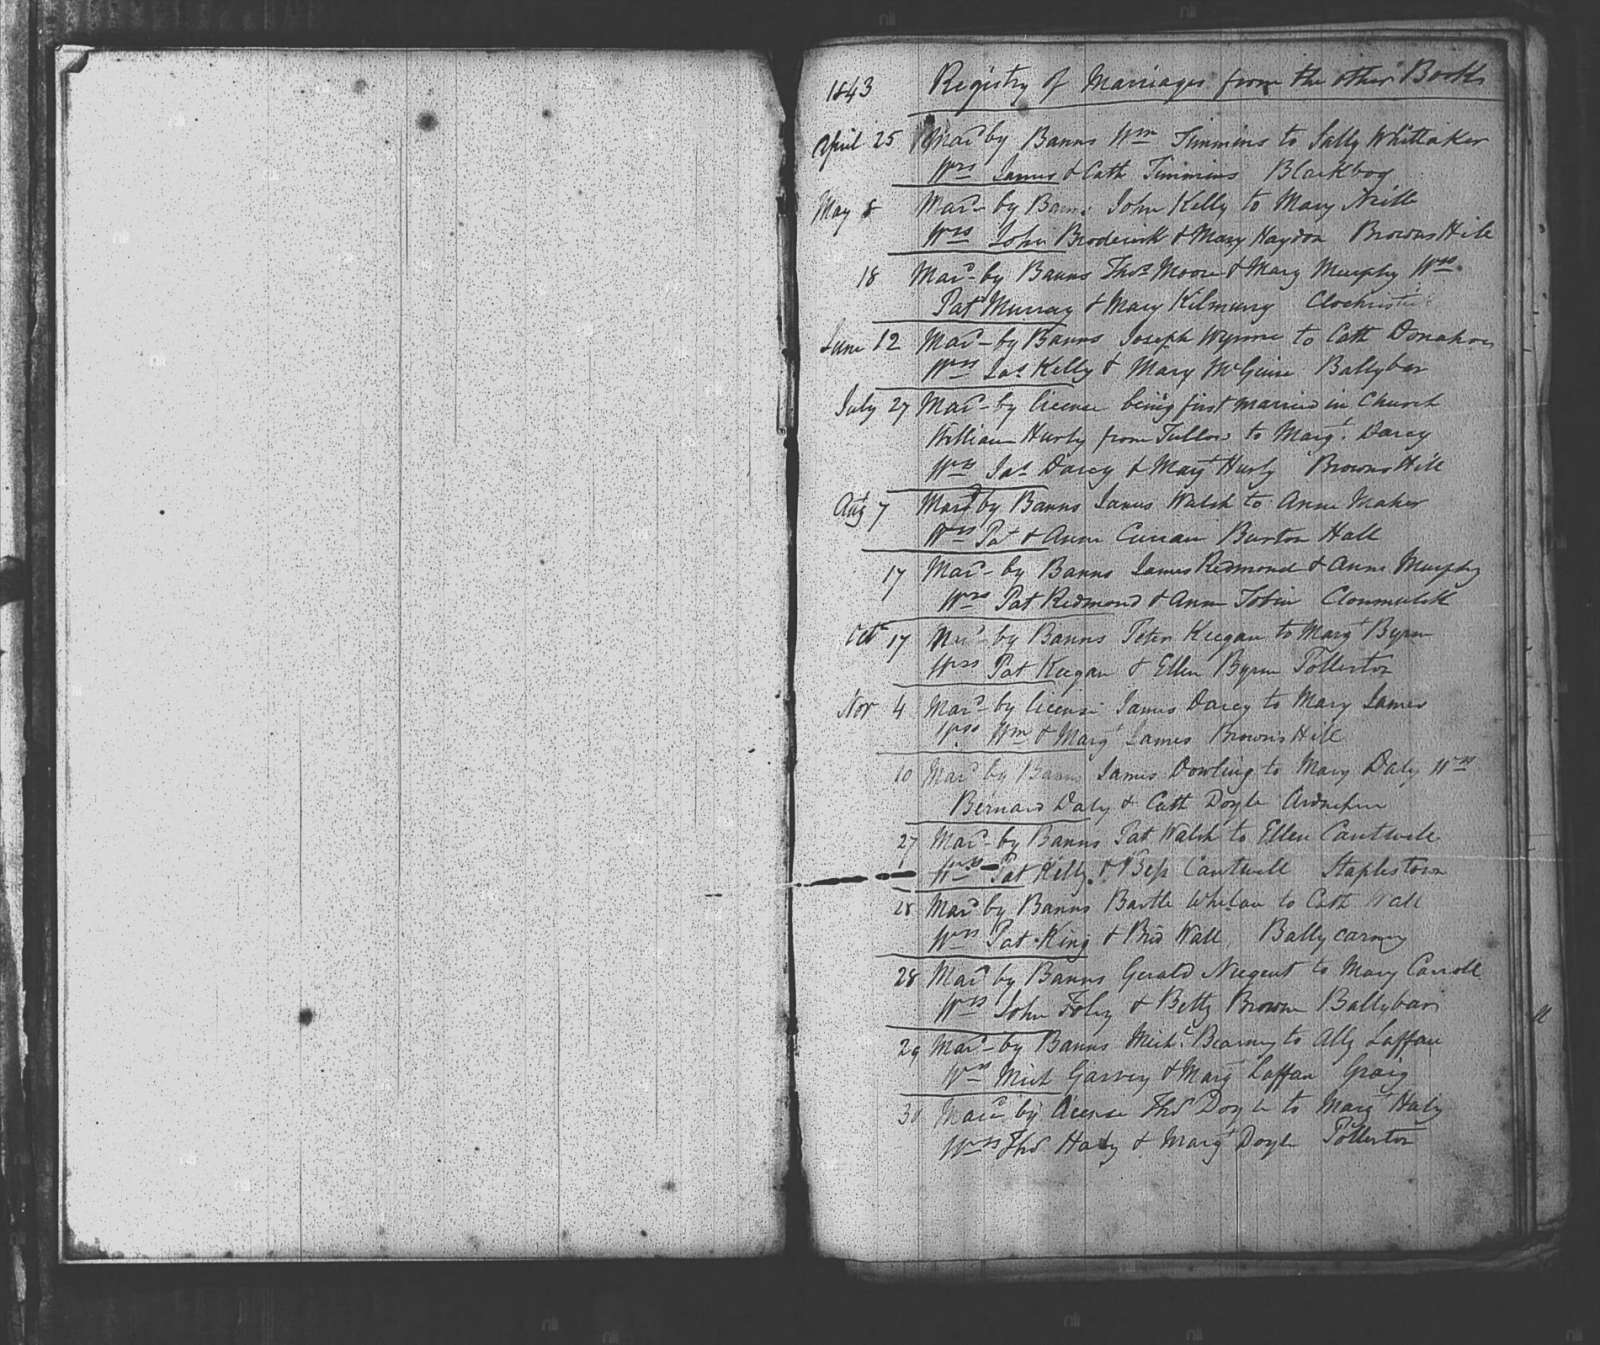 1843 Registry of Marriages from the other Books
April 25 Mard by Banns Wm Timmins to Sally Whittaker
Wss James & Cath Timmins Blackbog
May 8 Mard by Banns John Kelly to Mary Neill
Wss John Broderick & Mary Haydon Browns Hill
18 Mard by Banns Thos Moore & Mary Murphy Wss
Pat Murray & Mary Kilmurry
June 12 Mard by Banns Joseph Wynne to Cath Donahoe
Wss Jas Kelly & Mary McGuire Ballybar
July 27 Mard by licence being first married in Church
William Hurly from Tullow to Margt Darcy
Wss Jas Darcy & Margt Hurly Browns Hill
Augt 7 Mard by Banns James Walsh to Anne Maher
Wss Pat & Anne Curran Burton Hall
17 Mard by Banns James Redmond & Anne Murphy
Wss Pat Redmond & Anne Tobin Clonmulsk
Octr 17 Mard by Banns Peter Keegan to Margt Byrne
Wss Pat Keegan & Ellen Byrne Tollerton
Nov 4 Mard by licence James Darcy to Mary James
Wss Wm & Margt James Browns Hill
10 Mard by Banns James Dowling to Mary Daly Wss
Bernard Daly & Cath Doyle
27 Mard by Banns Pat Walsh to Ellen Cantwell
Wss Pat Kelly & Bess Cantwell Staplestown
28 Mard by Banns Bartle Whelan to Cath Wall
Wss Pat King & Brid Wall Ballycarney
28 Mard by Banns Gerald Nugent to Mary Carroll
Wss John Foley & Betty Browne Ballybar
29 Mard by Banns Michl Bearney to Ally Laffan
Wss Mich Garvey & Margt Laffan Graig
30 Mard by licence Thos Doyle to Margt Haly
Wss Thos Haly & Margt Doyle Tollerton